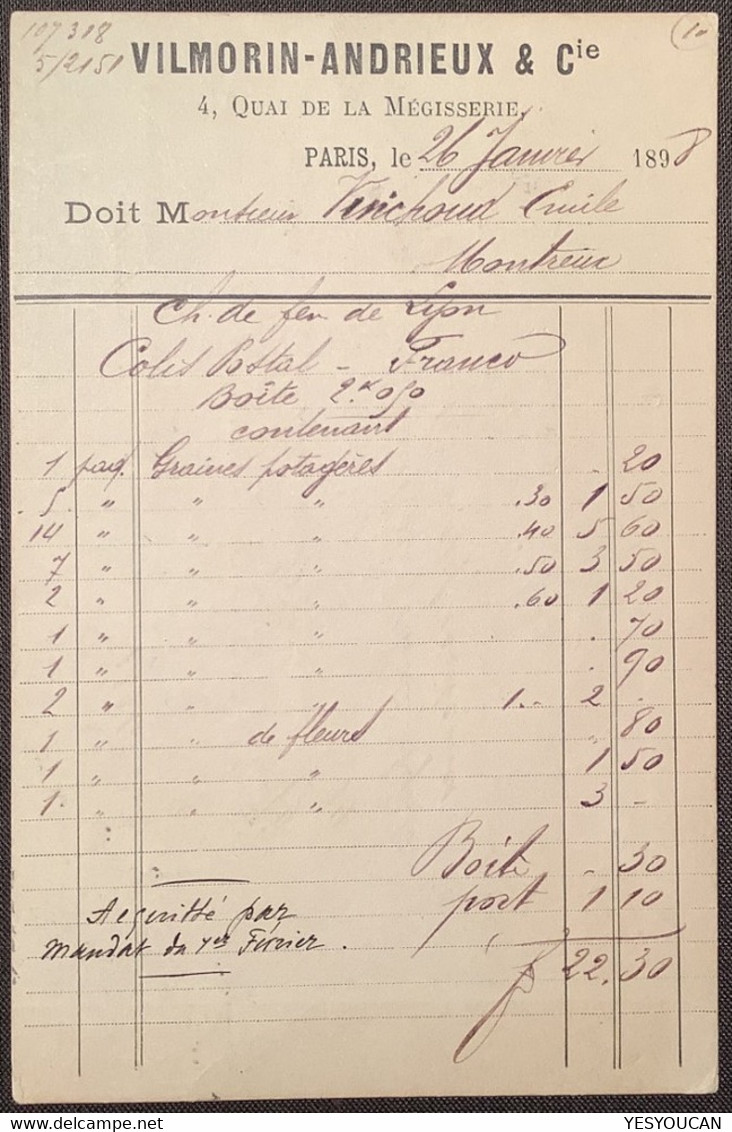 107318
5/2151
10
VILMORIN-ANDRIEUX & Cie
4, QUAI DE LA MÉGISSERIE,
PARIS, le 26 Janvier 1898
Doit Monsieur Vuichoud Emile
Montreux
Ch. de fer de Lyon
Colis Postal - Franco
Boîte 2.k 050
contenant
1 paq. Graines potagères . 20
5 " " " .30 1 50
14 " " " .40 5 60
7 " " " .50 3 50
2 " " " .60 1 20
1 " " " . 70
1 " " " . 90
2 " " " 1.- 2 .
1 " " de fleurs " 80
1 " " " 1 50
1 " " " 3 -
Boîte - 30
port 1 10
Acquitté par
mandat du 1er Février.
f 22.30
YESYOUCAN